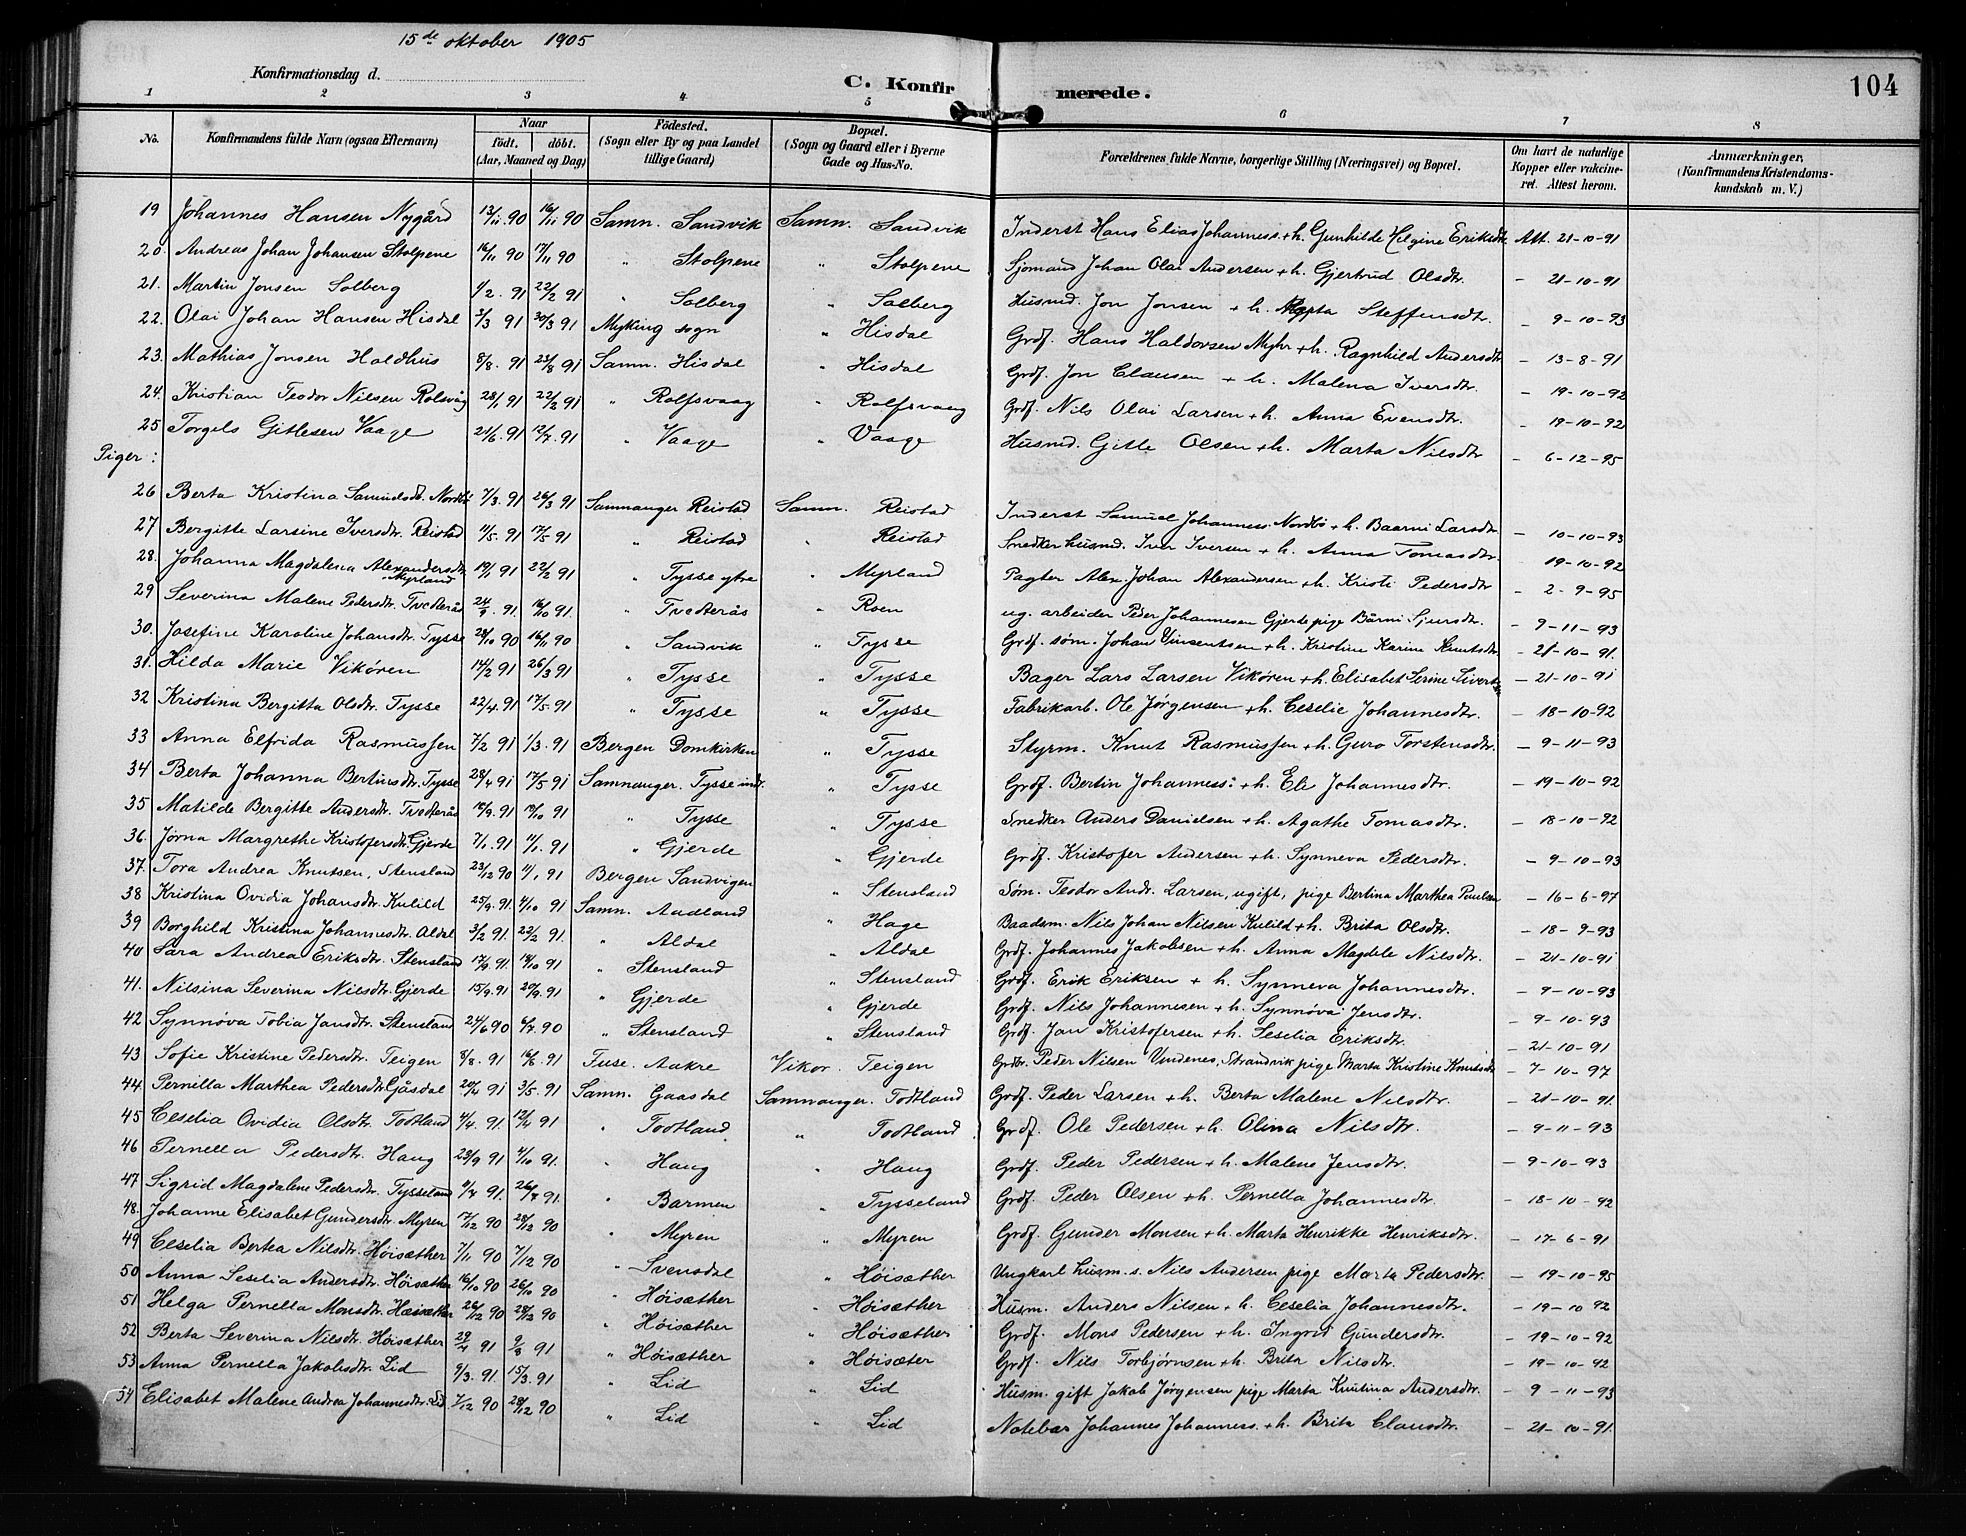 15de oktober 1905
Konfirmationsdag d.
C. Konfirmerede.
104
1 2 3 4 5 6 7 8
No. Konfirmandens fulde Navn (ogsaa Efternavn) Naar födt. döbt. (Aar, Maaned og Dag) Födested. (Sogn eller By og paa Landet tillige Gaard) Bopæl. (Sogn og Gaard eller i Byerne Gade og Hus-No. Forældrenes fulde Navne, borgerlige Stilling (Næringsvei) og Bopæl. Om havt de naturlige Kopper eller vaccineret. Attest herom. Anmærkninger, (Konfirmandens Kristendomskundskab m. V.)
19 Johannes Hansen Nygård 13/11 90 16/11 90 Samn. Sandvik Samn. Sandvik Inderst Hans Elias Johanness. + h. Gunhilde Helgine Eriksdtr. Att. 21-10-91
20. Andreas Johan Johansen Stolpene 16/11 90 17/11 90 " Stolpene " Stolpene Sjömand Johan Olai Andersen + h. Gjertrud Olsdtr. - 21-10-91
21. Martin Jonsen Solberg 1/2. 91 22/2 91 " Solberg " Solberg Husmd. Jon Jonsen + h. Steffensdtr. - 9-10-93
22. Olai Johan Hansen Hisdal 3/3 91 30/3 91 Myking sogn " Hisdal Grdf. Hans Haldorsen Myhr + h. Ragnhild Andersdtr - 13-8-91
23. Mathias Jonsen Haldhus 8/8. 91 23/8 91 Samn. Hisdal " Hisdal Grdf. Jon Clausen + h. Malena Iversdtr. - 19-10-92
24. Kristian Teodor Nilsen Rolsvåg 28/1 91 22/2 91 " Rolfsvaag " Rolfsvaag Grdf. Nils Olai Larsen + h. Anna Evensdtr. - 19-10-92
25 Torgels Gitlesen Vaage 21/6. 91 12/7. 91 " Vaage " Vaage Husmd. Gitle Olsen + h. Marta Nilsdtr - 6-12-95
Piger:
26 Berta Kristina Samuelsdt. Nordbö 7/3. 91 26/3 91 Samnanger Reistad Samn. Reistad Inderst Samuel Johanness. Nordbö + h. Baarni Larsdtr - 10-10-93
27 Bergitte Larsine Iversdtr. Reistad 11/5. 91 17/5 91 " Reistad " Reistad Snedker husmd. Iver Iversen + h. Anna Tomasdtr. - 19-10-92
28. Johanna Magdalena Alexandersdtr. Myrland 19/1 91 22/2 91 " Tysse ytre " Myrland Pagter Alex. Johan Alexandersen + h. Kristi Pedersdtr - 2-9-95
29 Severina Malene Pedersdtr. Tvedterås 24/9. 91 16/10 91 " Tvedterås " Roen ug. arbeider Peder Johannesen Gjerde pige Bårni Sjursdtr. - 9-11-93
30. Josefine Karoline Johansdtr. Tysse 28/10 90 16/11 90 " Sandvik " Tysse Grdf. söm. Johan Vinsentsen + h. Kristine Karine Knutsdtr - 21-10-91.
31. Hilda Marie Vikören 14/2 91 26/3 91 " Tysse " Tysse Bager Lars Larsen Vikören + h. Elisabet Serine Sivertsdtr. - 21-10-91
32 Kristina Bergitta Olsdtr. Tysse 22/4. 91 17/5. 91 " Tysse " Tysse Fabrikarb. Ole Jörgensen + h. Ceselie Johannesdtr. - 18-10-92
33 Anna Elfrida Rasmussen 7/2 91 1/3. 91 Bergen Domkirken " Tysse Styrm. Knut Rasmussen + h. Guro Torstensdtr. - 9-11-93
34 Berta Johanna Bertinsdtr. Tysse 28/4 91 17/5 91 Samnanger. Tysse indr. " Tysse Grdf. Bertin Johanness: + h. Eli Johannesdtr. - 19-10-92
35 Matilde Bergitte Andersdtr. Tvedterås 12/9. 91 18/10 91 " Tysse " Tysse Snedker Anders Danielsen + h. Agathe Tomasdtr. - 18-10-92
36. Jörna Margrethe Kristofersdtr. Gjerde 7/1. 91 11/1. 91 " Gjerde " Gjerde Grdf. Kristofer Andersen + h. Synneva Pedersdtr. - 9-10-93
37. Tora Andrea Knutsen, Stensland 23/12 90 11/1 91 Bergen Sandvigen " Stensland Söm. Teodor Andr. Larsen, ugift, pige Bertina Marthea Paulsen - 16-6-97
38 Kristina Ovidia Johansdtr. Kulild 25/9. 91. 4/10 91 Samn. Aadland " Hage Baadsm. Nils Johan Nilsen Kulild + h. Brita Olsdtr. - 18-9-93
39 Borghild Kristina Johannesdtr. Aldal 3/2 91. 22/2 91. " Aldal " Aldal Grdf. Johannes Jakobsen + h. Anna Magdele Nilsdtr. - 21-10-91
40 Sara Andrea Eriksdtr. Stensland 17/9. 91. 18/10 91 " Stensland " Stensland Grdf. Erik Eriksen + h. Synneva Johannesdtr. - 9-10-93
41. Nilsina Severina Nilsdtr. Gjerde 15/9. 91 20/9. 91 " Gjerde " Gjerde Grdf. Nils Johannesen + h. Synnöva Jensdtr. - 9-10-93
42 Synnöva Tobia Jansdtr. Stensland 24/6 90 6/7. 90 " Stensland " Stensland Grdf. Jan Kristofersen + h. Seselia Eriksdtr. - 21-10-91
43 Sofie Kristine Pedersdtr. Teigen 8/8. 91 16/8. 91 Fuse. Aakre Vikör. Teigen Grdbr. Peder Nilsen Vindenes, Strandvik pige Marta Kristine Knutsdtr - 7-10-97
44 Pernella Marthea Pedersdtr. Gåsdal 20/4 91 3/5. 91 Samn. Gaasdal Samnanger. Todtland Grdf. Peder Larsen + h. Berta Malene Nilsdtr. - 21-10-91.
45 Ceselia Ovidia Olsdtr. Todtland 4/4. 91. 12/4 91 " Todtland " Todtland Grdf. Ole Pedersen + h. Olina Nilsdtr. - 9-11-93
46 Pernella Pedersdtr. Haug 23/9 91 4/10 91. " Haug " Haug Grdf. Peder Pedersen + h. Malene Jensdtr. - 9-10-93
47 Sigrid Magdalene Pedersdtr. Tysseland 9/7 91. 26/7 91. " Barmen " Tysseland Grdf. Peder Olsen + h. Pernella Johannesdtr. - 18-10-92
48. Johanne Elisabet Gundersdtr. Myren 17/12 90 28/12 90 " Myren " Myren Grdf. Gunder Monsen + h. Marta Henrikke Henriksdtr. - 17-6-91
49 Ceselia Bertea Nilsdtr. Höisæther 7/11 90 7/12 90 " Svensdal " Höisæther Ungkarl husm. s. Nils Andersen pige Marta Pedersdtr. - 19-10-95
50 Anna Seselia Andersdtr. Höisæther 16/10 90 26/10 90 " Höisæther " Höisæther Husm. Anders Nilsen + h. Ceselia Johannesdtr. - 19-10 92
51 Helga Pernella Monsdtr. Höisæther 26/12 90 28/12 90 " Höisæther " Höisæther Grdf. Mons Pedersen + h. Ingrid Gundersdtr. - 19-10-92
52 Berta Severina Nilsdtr. Höisæther 29/4 91 9/8 91 " Höisæther " Höisæter Grdf. Nils Torbjörnsen + h. Brita Nilsdtr. - 19-10-92
53 Anna Pernella Jakobsdtr. Lid 9/3. 91. 15/3. 91 " Lid " Lid Husm. gift Jakob Jörgensen pige Marta Knutina Andersdtr. - 9-11-93
54 Elisabet Malene Andrea Johannesdtr. Lid 7/12 90 28/12 90 " Lid " Lid Notebas Johannes Johanness. + h. Brita Clausdtr. - 21-10-91.